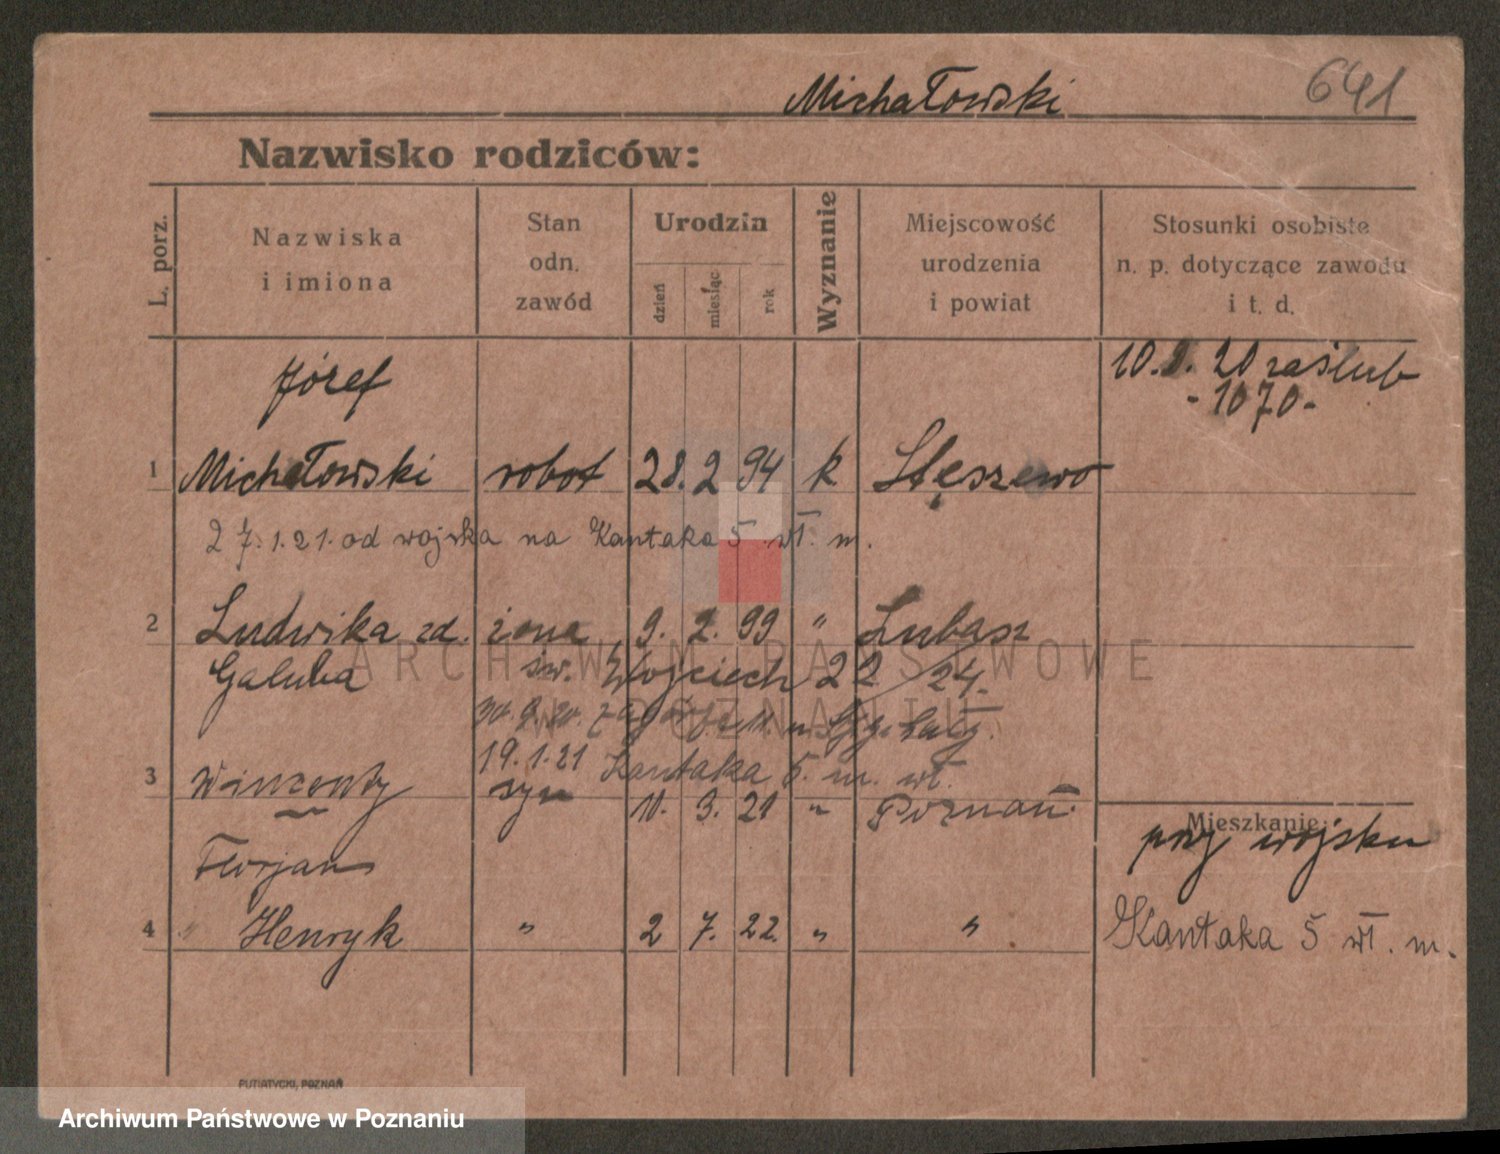 Michałowski 641
Nazwisko rodziców:
L. porz.
Nazwiska
i imiona
Stan
odn.
zawód
Urodzin
dzień
miesiąc
rok
Wyznanie
Miejscowość
urodzenia
i powiat
Stosunki osobiste
n. p. dotyczące zawodu
i t. d.
10. 20 zaślub
- 1070 -
Józef
1 Michałowski robot 28. 2 94 k Stęszewo
27.1.21. od wojska na Kantaka 5 wł. m.
2 Ludwika zd. żona 9. 2. 99 " Lubasz
Galuba św. Wojciech 22/24.
19.1.21 Kantaka 5. m. wł.
3 Winzenty syn 11. 3. 21 " Poznań.
Florjan
4 " Henryk " 2 7. 22. " "
Mieszkanie:
przy wojsku
Kantaka 5 wł. m.
PUTIATYCKI, POZNAŃ
ARCHIWUM PAŃSTWOWE
W POZNANIU
Archiwum Państwowe w Poznaniu